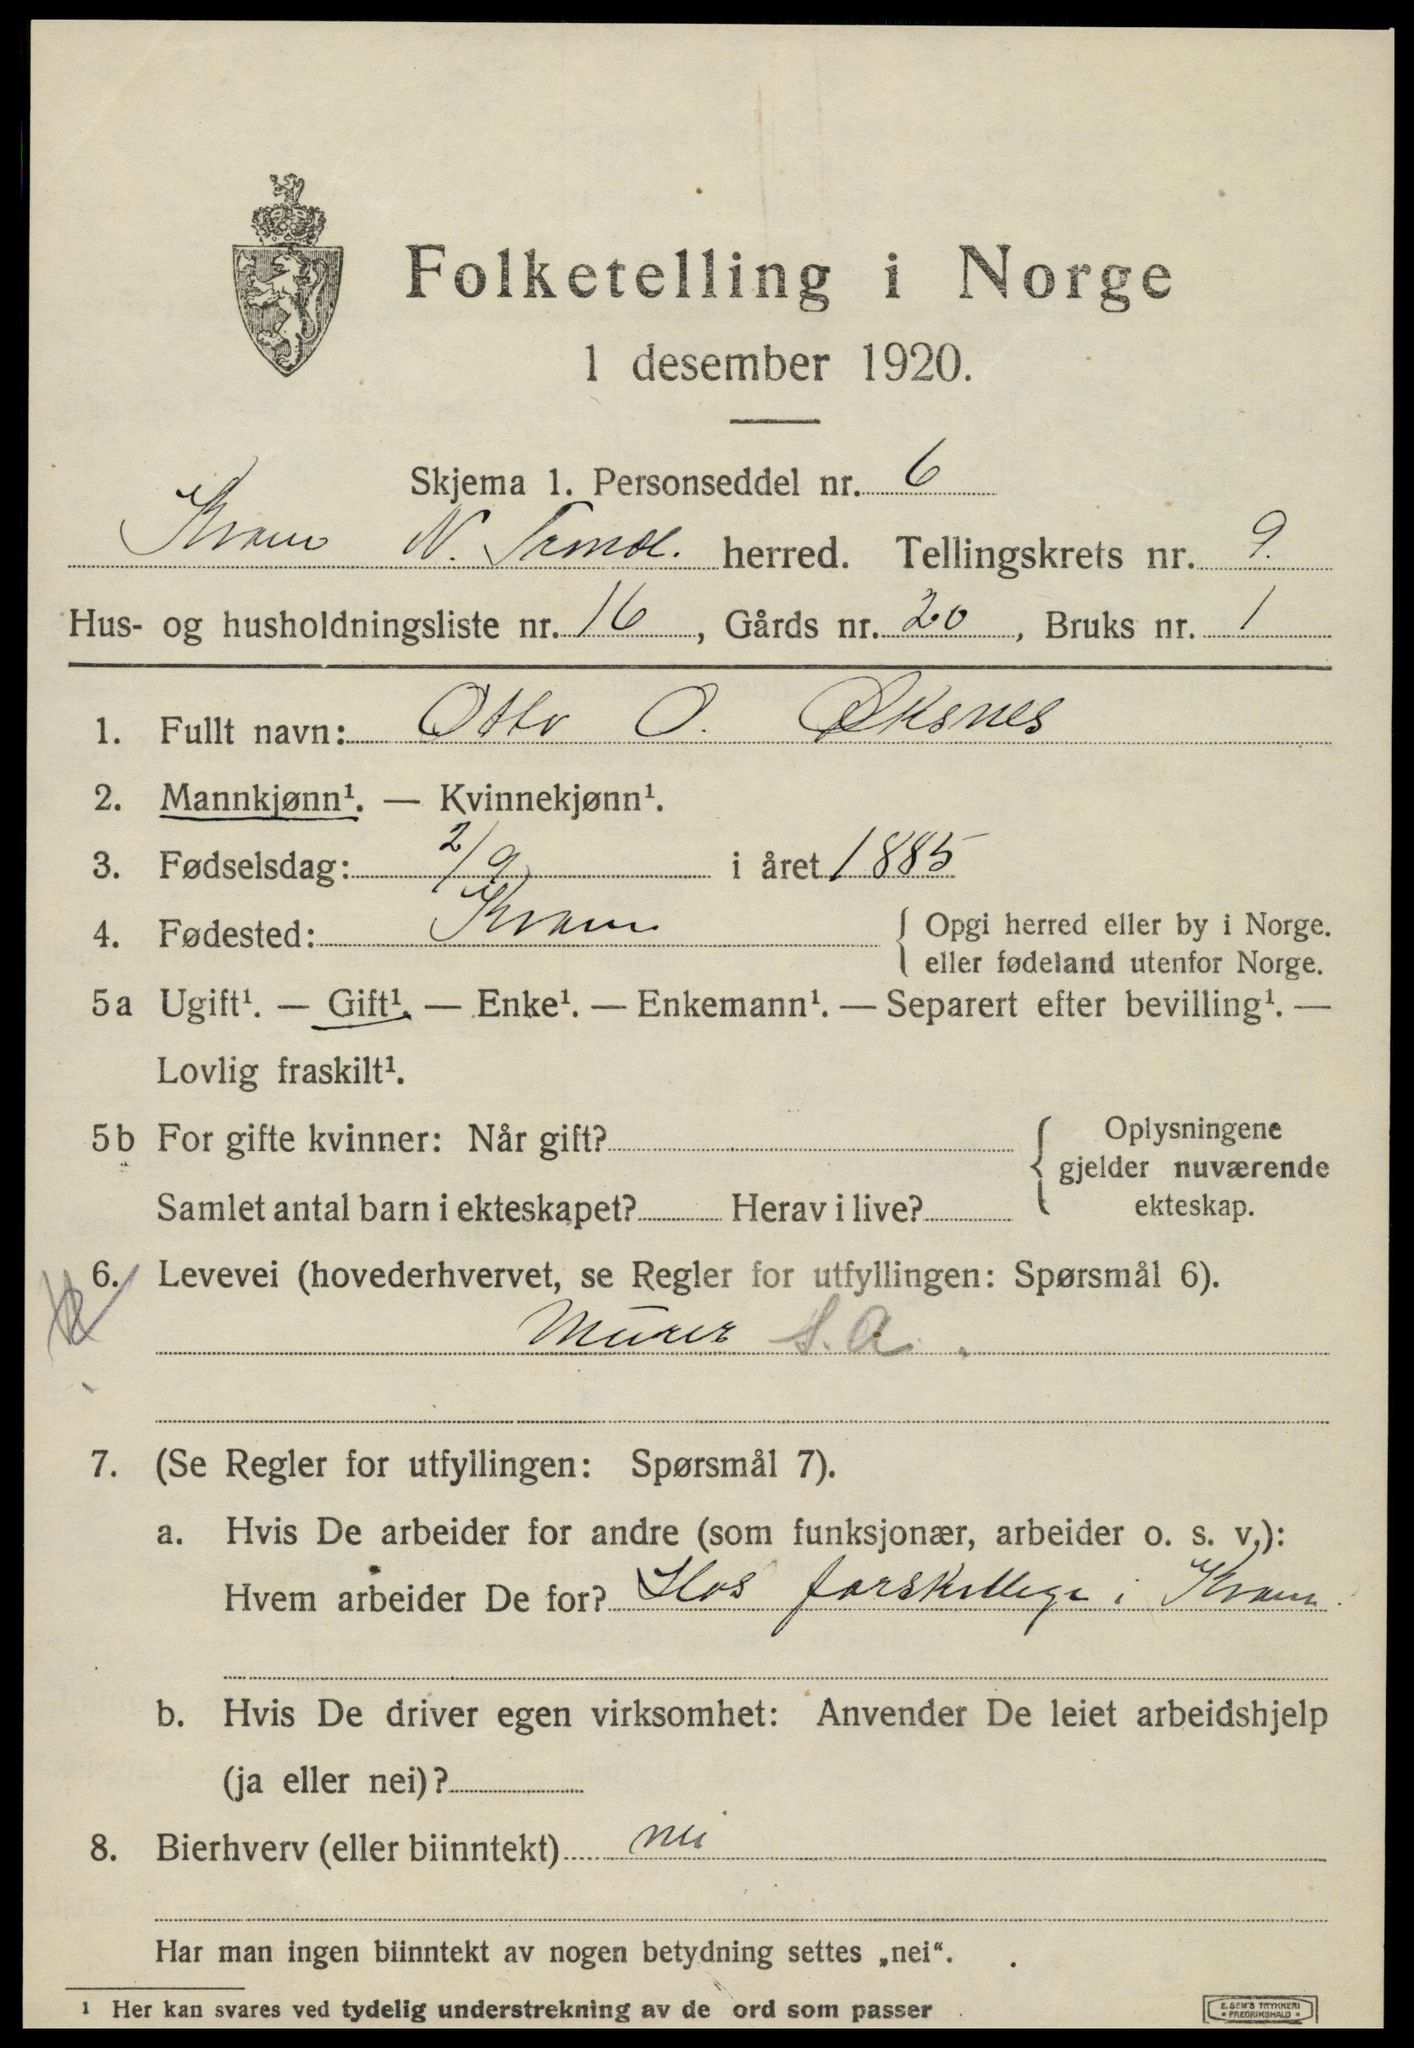 Folketelling i Norge
1 desember 1920.
Skjema 1. Personseddel nr. 6
Kvam N. Trondl. herred. Tellingskrets nr. 9.
Hus- og husholdningsliste nr. 16, Gårds nr. 20, Bruks nr. 1
1. Fullt navn: Otto O. Øksnes
2. Mannkjønn¹. — Kvinnekjønn¹.
3. Fødselsdag: 2/9 i året 1885
4. Fødested: Kvam { Opgi herred eller by i Norge.
eller fødeland utenfor Norge.
5a Ugift¹. — Gift¹. — Enke¹. — Enkemann¹. — Separert efter bevilling¹. —
Lovlig fraskilt¹.
5b For gifte kvinner: Når gift? { Oplysningene
gjelder nuværende
Samlet antal barn i ekteskapet? Herav i live? ekteskap.
6. Levevei (hovederhvervet, se Regler for utfyllingen: Spørsmål 6).
Murer S. A.
7. (Se Regler for utfyllingen: Spørsmål 7).
a. Hvis De arbeider for andre (som funksjonær, arbeider o. s. v.):
Hvem arbeider De for? Hos forskellige i Kvam.
b. Hvis De driver egen virksomhet: Anvender De leiet arbeidshjelp
(ja eller nei)?
8. Bierhverv (eller biinntekt) nei
Har man ingen biinntekt av nogen betydning settes „nei“.
1 Her kan svares ved tydelig understrekning av de ord som passer
E. SEM'S TRYKKERI
• FREDRIKSHALD •